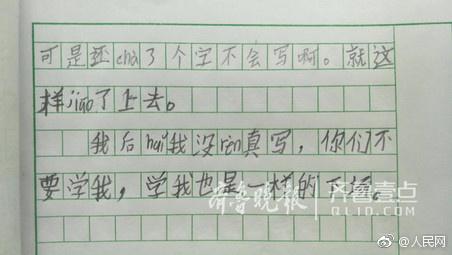 可是还cha了个字不会写啊。就这
样jiao了上去。
我后hui我没ren真写，你们不
要学我，学我也是一样的下场。
齐鲁晚报 齐鲁壹点
QLID.COM
@人民网